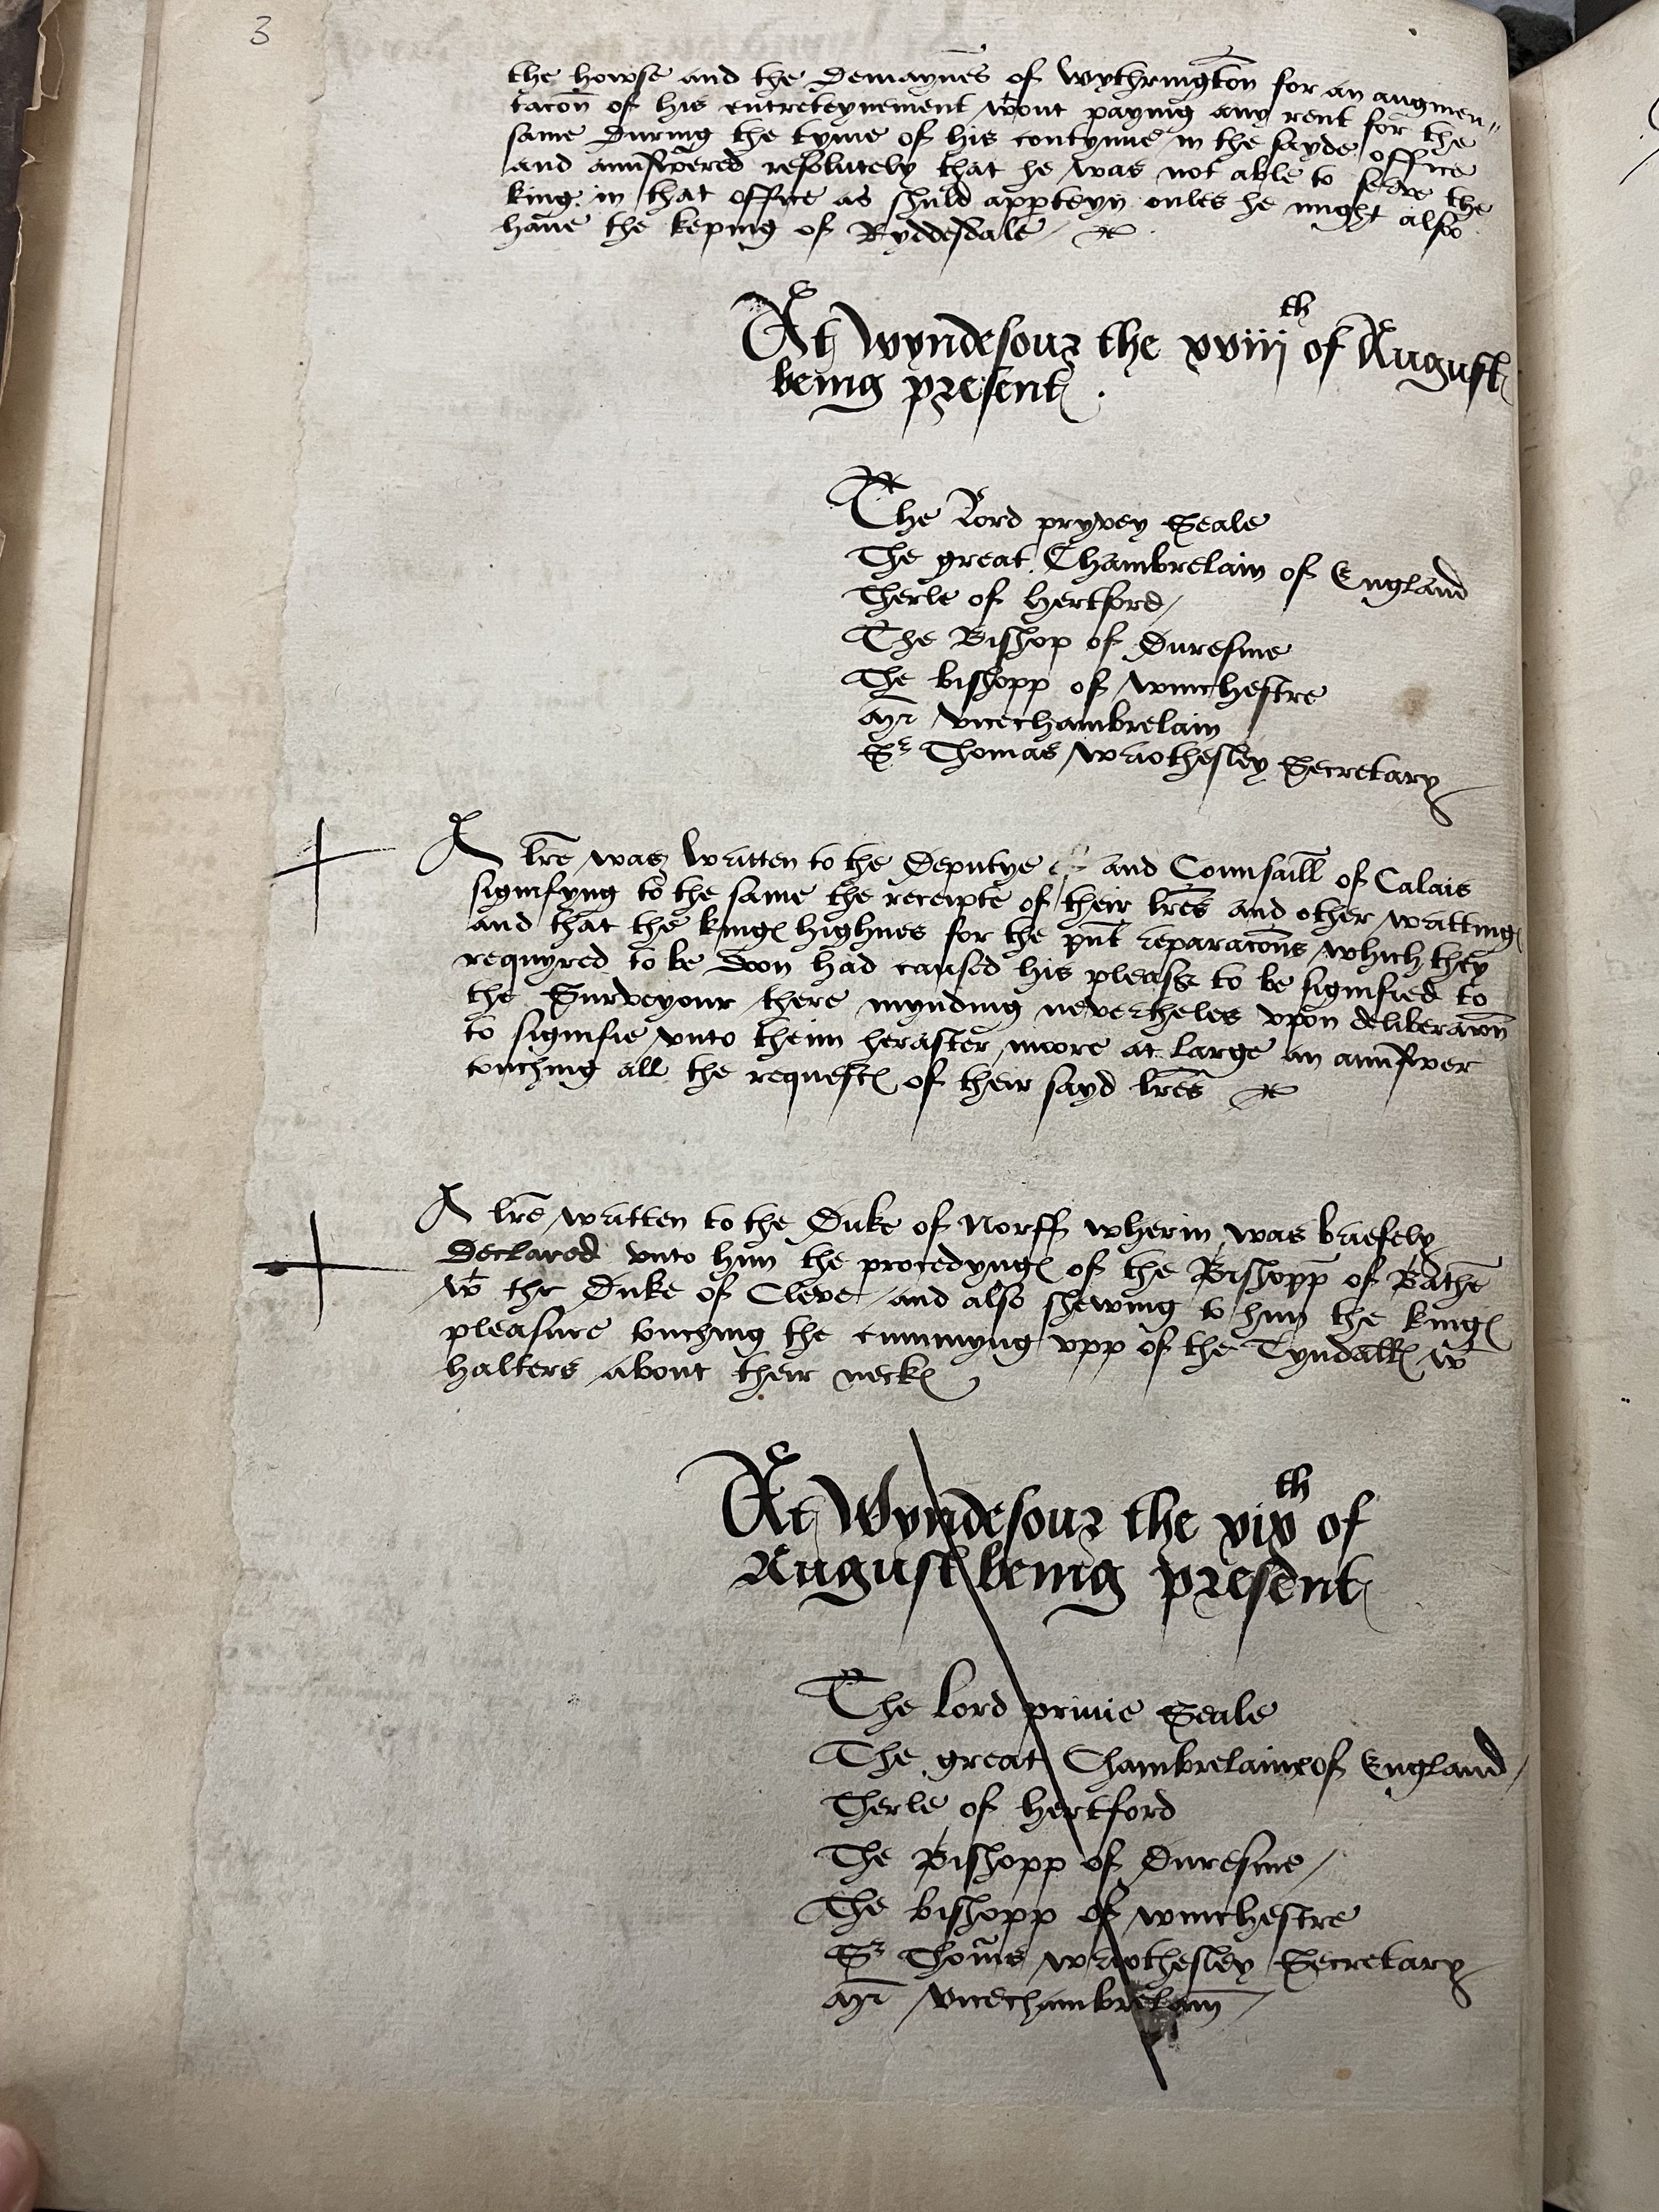 3
the howse and the Demaynes of Wythrington for an augmen„
tacōn of his entreteynement wᵗout paying any rent for the
same during the tyme of his contynue in the sayde office
and aunswered resolutely that he was not able to serve the
king in that office as shuld apperteyn onles he might also
haue the keping of Ryddesdale
At Wyndesour the xviiiᵗʰ of August
being present .
The Lord pryvey Seale
The great Chambrelain of England
Therle of Hertford
The Bishop of Duresme
The bishopp of Winchestre
Mr Vicechambrelain
Sʳ Thomas Wriothesley Secretary
A lr̄e was written to the Deputye and Counsaill of Calais
signifyng to the same the receipte of their lr̄es and other writting
and that the king highnes for the pn̄t reparacōns which they
requyred to be doon had caused his pleasʳ to be signified to
the Surveyour there mynding nevertheles vpon deliberacōn
to signifie vnto theim heraftер moore at large an aunswer
touching all the requestes of their sayd lr̄es
A lr̄e written to the Duke of Norff wherin was briefely
Declared vnto him the procedynges of the Bishopp of Bathe
wᵗ the Duke of Cleve and also shewing to him the kinges
pleasure touching the cummyng vpp of the Tyndalles wᵗ
halters about their neckes
At Wyndesour the xixᵗʰ of
August being present
The Lord privie Seale
The great Chambrelaine of England
Therle of Hertford
The Bishopp of Duresme
The bishopp of Winchestre
Sʳ Thom̄s Wriothesley Secretary
Mr Vicechambrelain